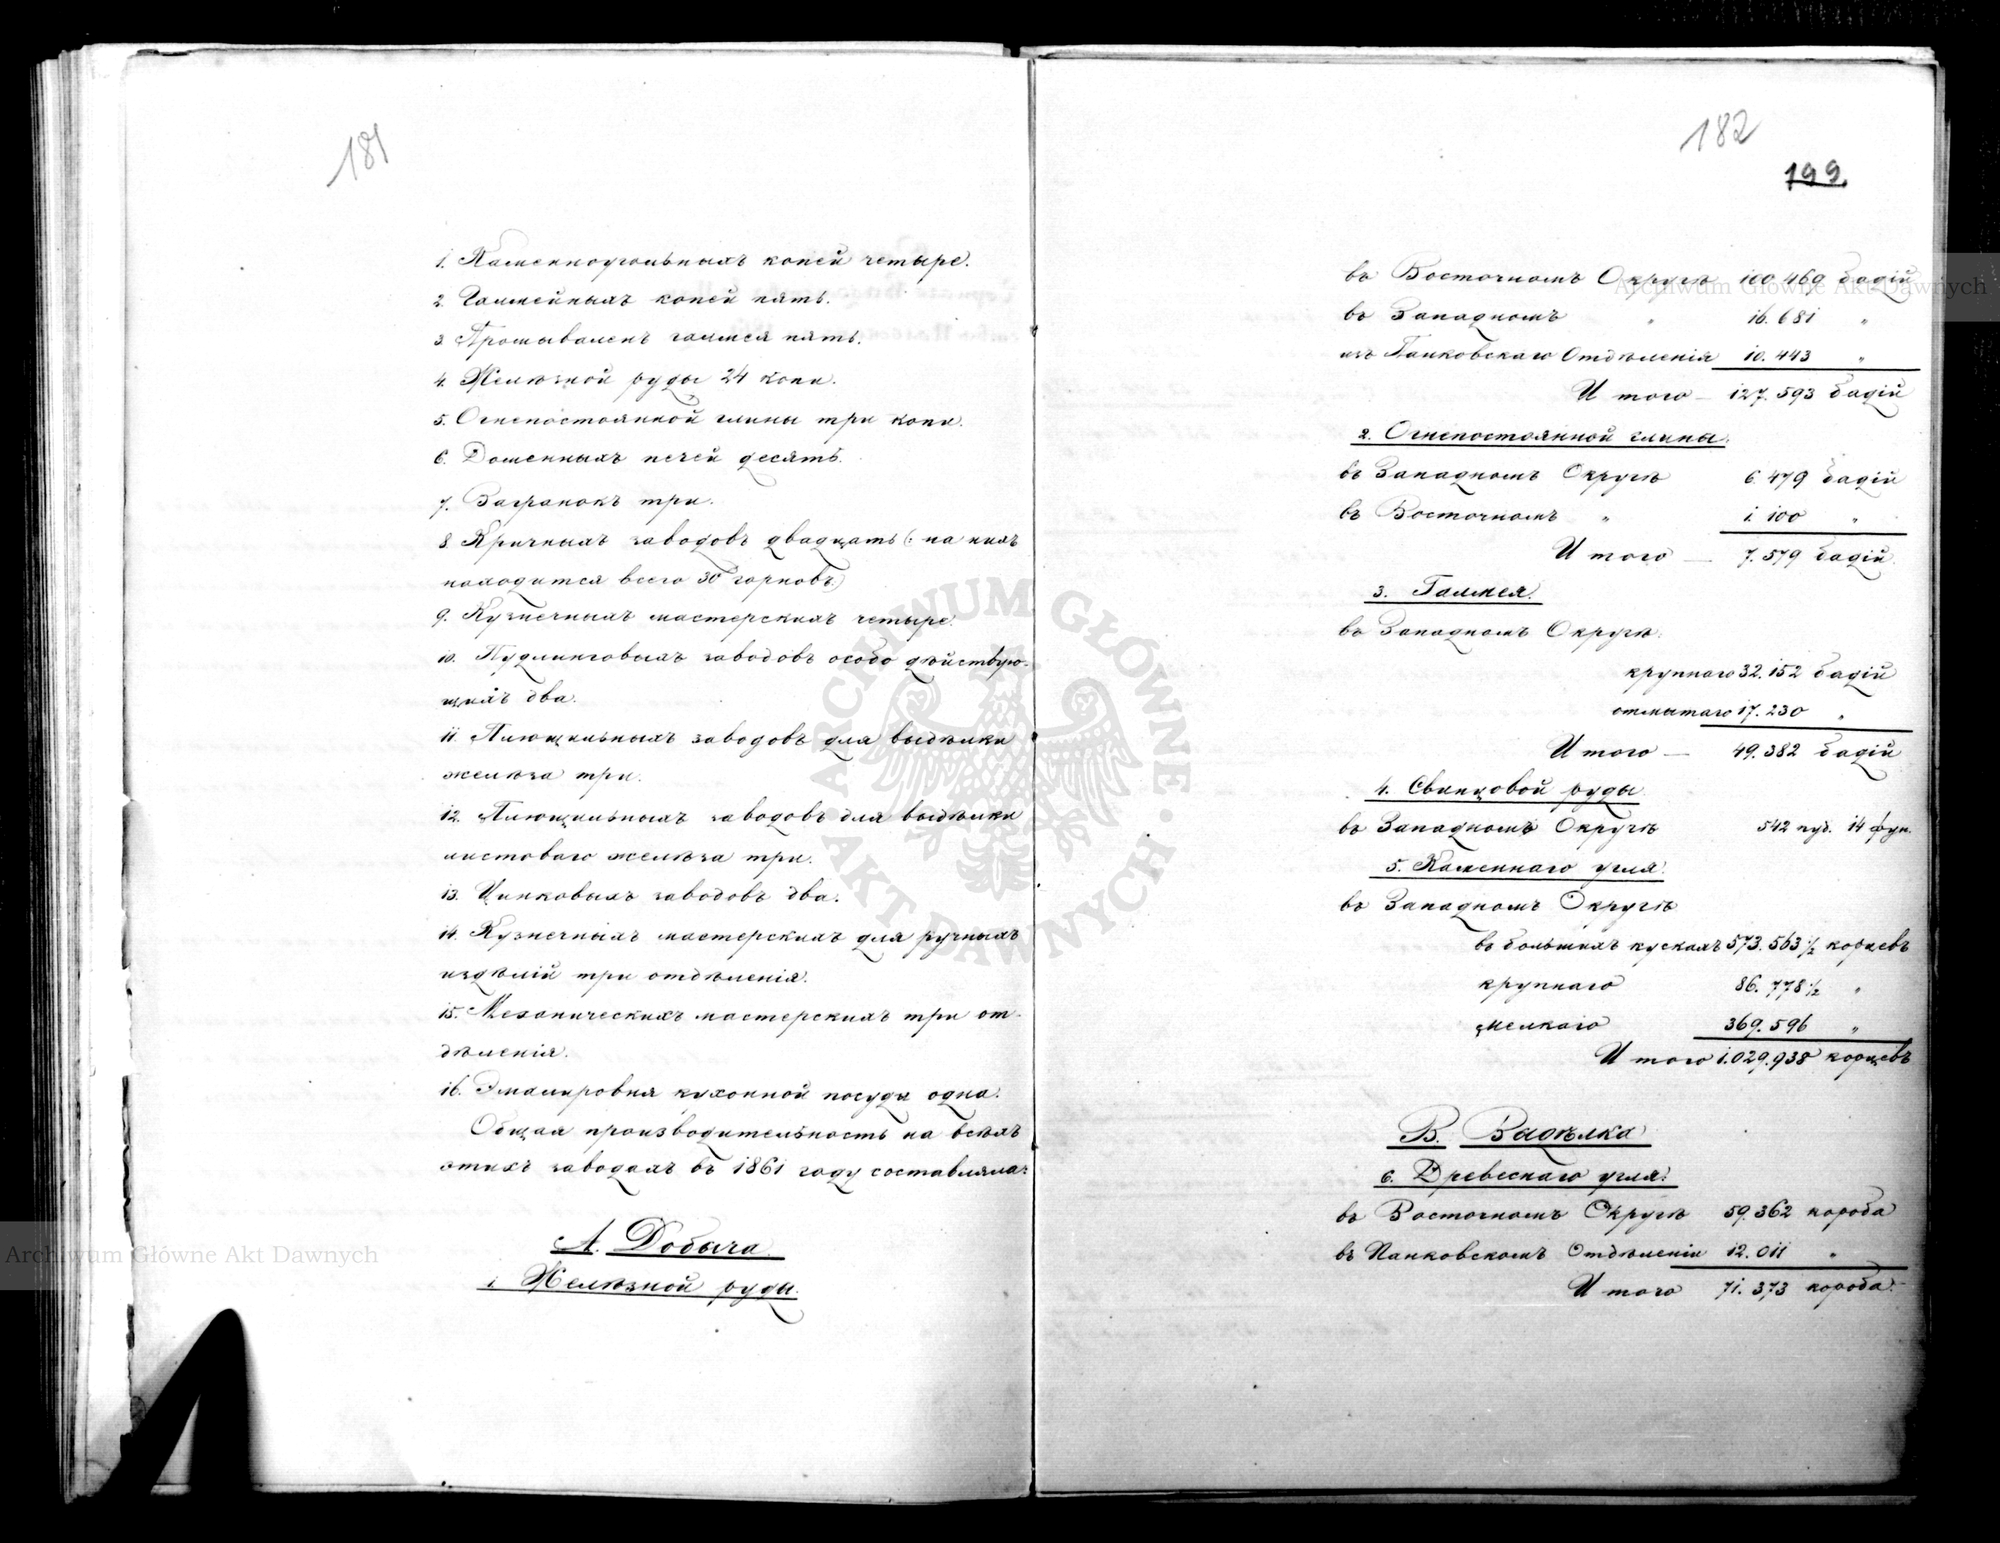 181
1. Каменноугольныхъ копей четыре.
2. Галмейныхъ копей пять.
3. Промываленъ галмея пять.
4. Желѣзной руды 24 копи.
5. Огнепостоянной глины три копи.
6. Доменныхъ печей десять.
7. Вагранокъ три.
8. Кричныхъ заводовъ двадцать (: на нихъ
находится всего 30 горновъ)
9. Кузнечныхъ мастерскихъ четыре.
10. Пудлинговыхъ заводовъ особо дѣйствую-
щихъ два.
11. Плющильныхъ заводовъ для выдѣлки
желѣза три.
12. Плющильныхъ заводовъ для выдѣлки
листоваго желѣза три.
13. Цинковыхъ заводовъ два.
14. Кузнечныхъ мастерскихъ для ручныхъ
издѣлій три отдѣленія.
15. Механическихъ мастерскихъ три от-
дѣленія.
16. Эмалировня кухонной посуды одна.
Общая производительность на всѣхъ
этихъ заводахъ въ 1861 году составляла:
А. Добыча
1. Желѣзной руды.
182
199.
въ Восточномъ Округѣ 100.469 бадій
въ Западномъ " 16.681 "
изъ Панковскаго Отдѣленія 10.443 "
Итого — 127.593 бадій
2. Огнепостоянной глины.
въ Западномъ Округѣ 6.479 бадій
въ Восточномъ " 1.100 "
Итого — 7.579 бадій.
3. Галмея.
въ Западномъ Округѣ:
крупнаго 32.152 бадій
отмытаго 17.230 "
Итого — 49.382 бадій
4. Свинцовой руды.
въ Западномъ Округѣ 542 пуд. 14 фун.
5. Каменнаго угля.
въ Западномъ Округѣ
въ большихъ кускахъ 573.563 1/2 корцевъ
крупнаго 86.778 1/2 "
мелкаго 369.596 "
Итого 1.029.938 корцевъ
В. Выдѣлка
6. Древеснаго угля.
въ Восточномъ Округѣ 59.362 короба
въ Панковскомъ Отдѣленіи 12.011 "
Итого 71.373 короба.
Archiwum Główne Akt Dawnych
Archiwum Główne Akt Dawnych
ARCHIWUM GŁÓWNE · AKT DAWNYCH ·